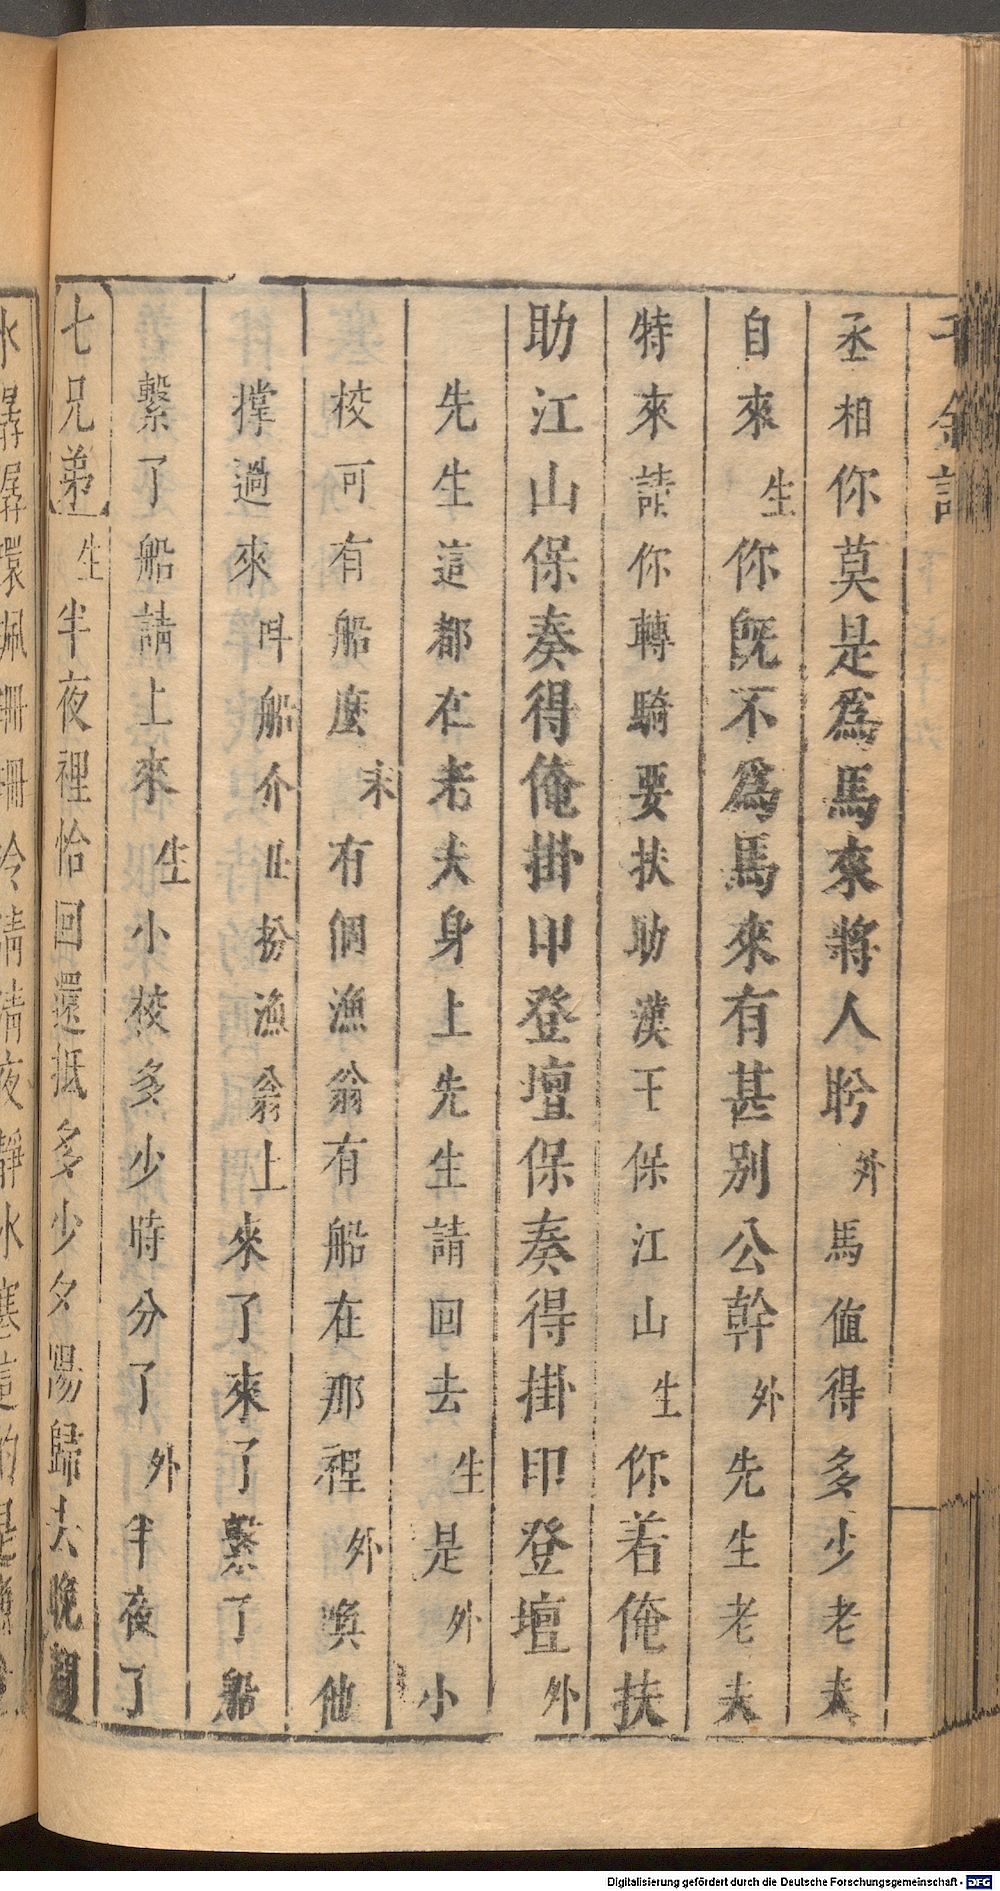 千金記
丞相你莫是爲馬來將人盻外馬值得多少老夫
自來生你既不爲馬來有甚別公幹外先生老夫
特來請你轉騎要扶助漢王保江山生你若俺扶
助江山保奏得俺掛印登壇保奏得掛印登壇外
先生這都在老夫身上先生請回去生是外小
校可有船麽末有個漁翁有船在那裡外喚他
撑過來叫船介丑扮漁翁上來了來了繫了船
繫了船請上來生小校多少時分了外半夜了
七兄弟生半夜裡恰回還抵多少夕陽歸去晚
水潺潺環珮珊珊冷清清夜靜水寒這的是
Digitalisierung gefördert durch die Deutsche Forschungsgemeinschaft - DFG